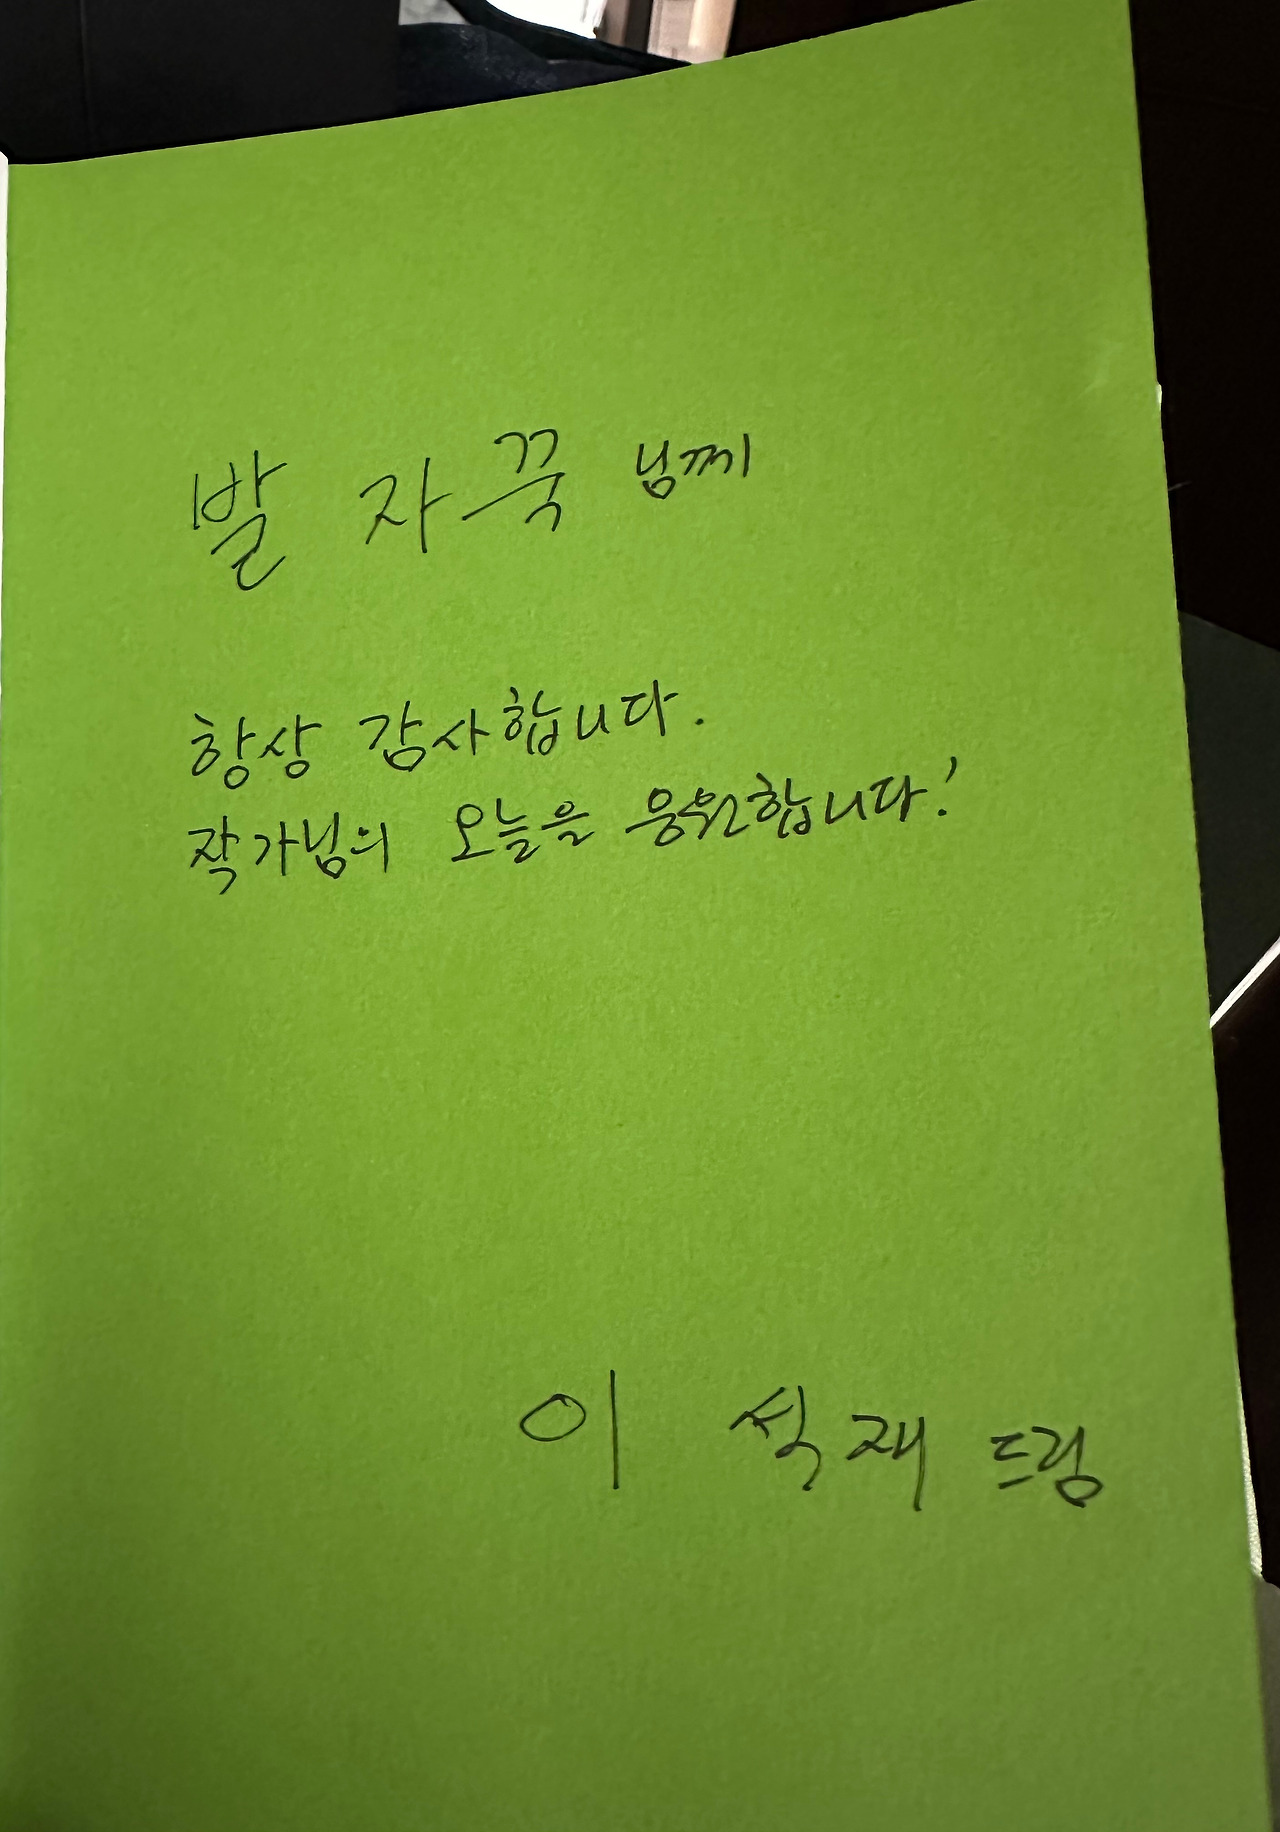 발 자꾹 님께
항상 감사합니다.
작가님의 오늘을 응원합니다!
이 석재 드림